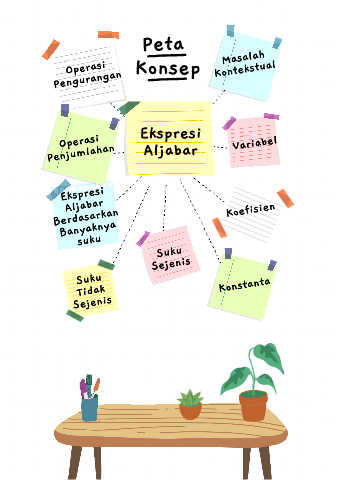 Peta
Konsep
Operasi
Pengurangan
Masalah
Kontekstual
Ekspresi
Aljabar
Operasi
Penjumlahan
Variabel
Ekspresi
Aljabar
Berdasarkan
Banyaknya
suku
Koefisien
Suku
Sejenis
Suku
Tidak
Sejenis
Konstanta